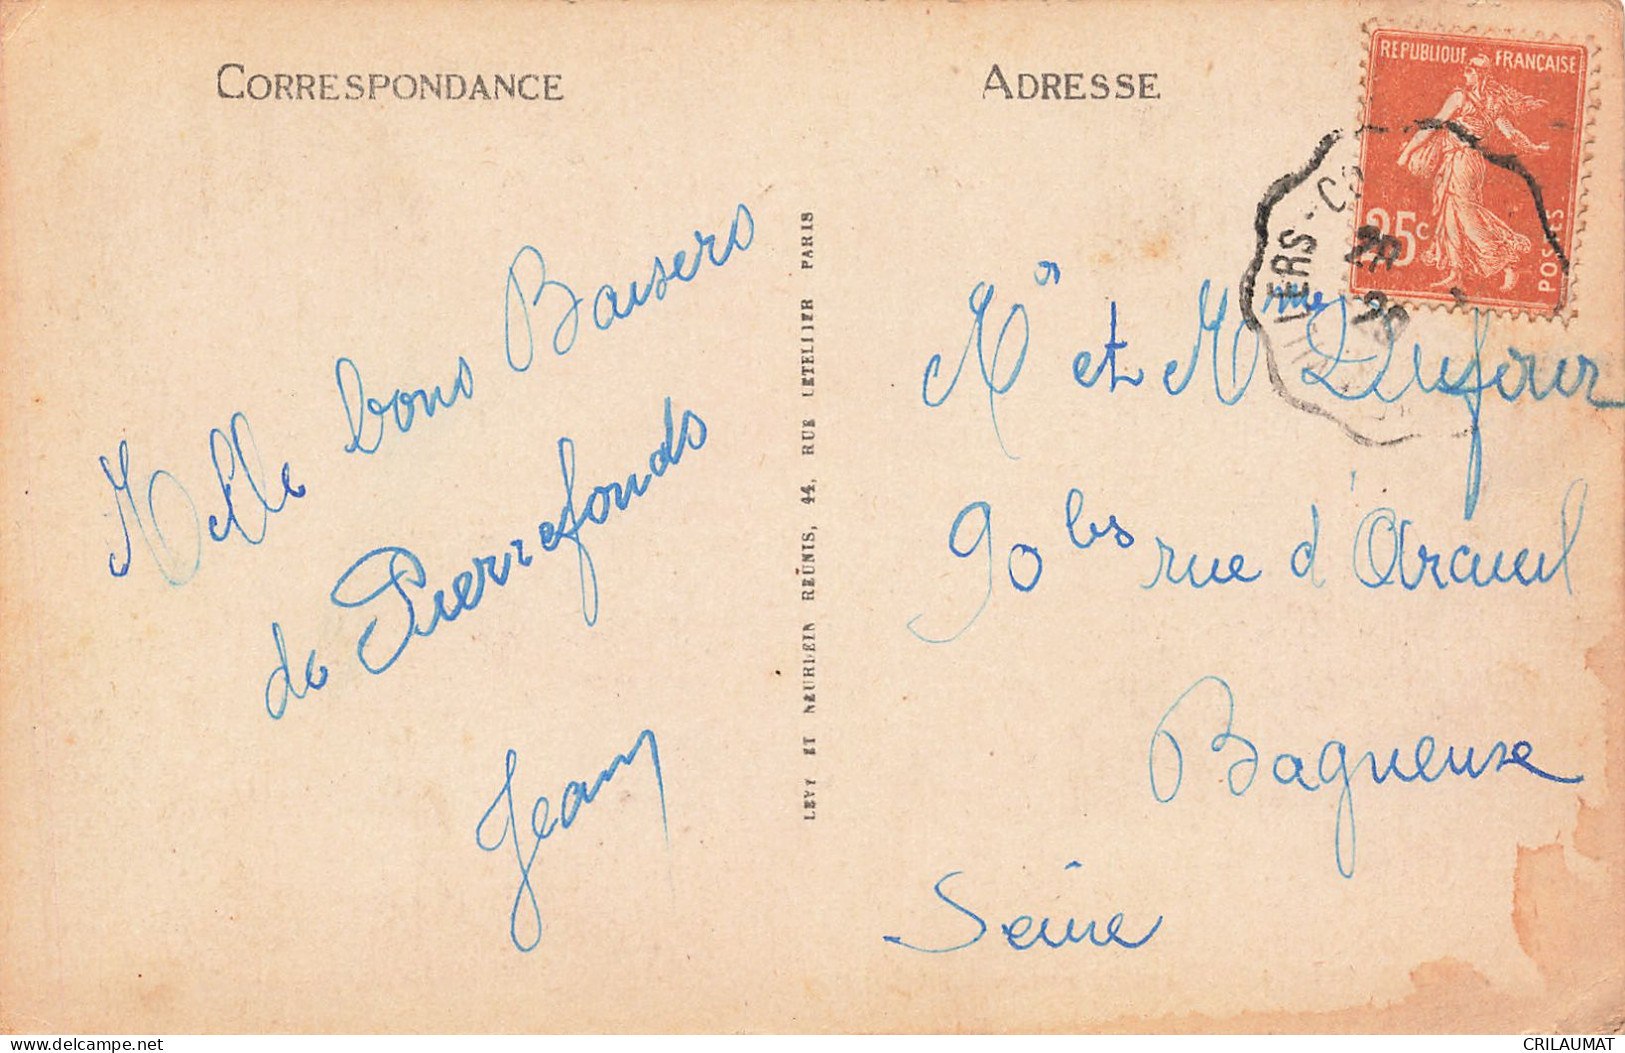 CORRESPONDANCE
Mille bons Baisers
de Pierrefonds
Jean
LEVY ET NEURDEIN RÉUNIS, 44, RUE LETELLIER PARIS
ADRESSE
REPUBLIQUE FRANÇAISE
25c
POSTES
Mr et Mme Dufour
90 bis rue d'Arcueil
Bagneuse
Seine
delcampe.net
CRILAUMAT